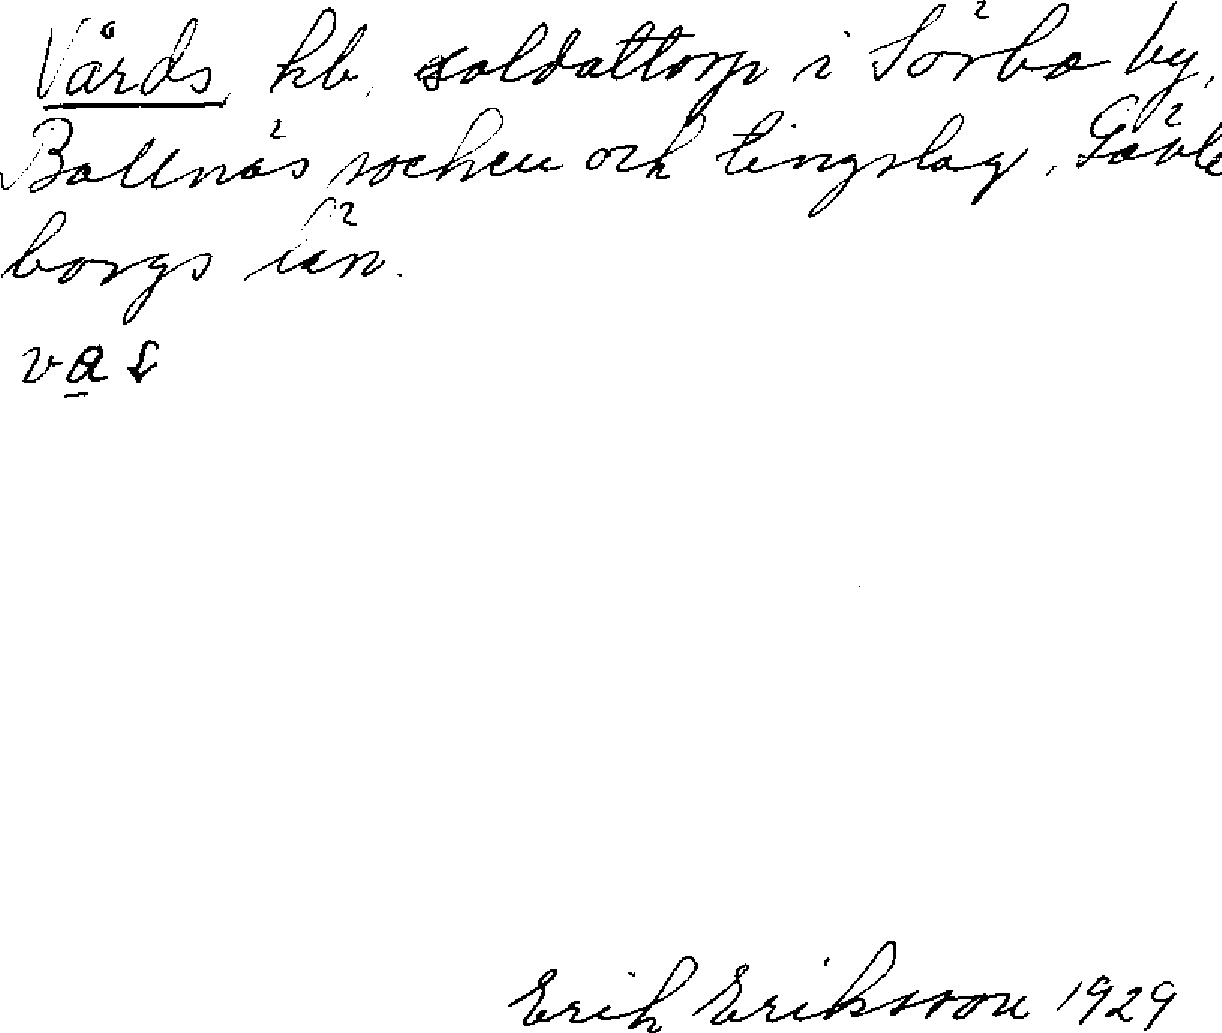 Vårds, hb. soldattorp i Sörbo by,
Bollnäs socken och tingslag, Gävle
borgs län.
Erik Eriksson 1929